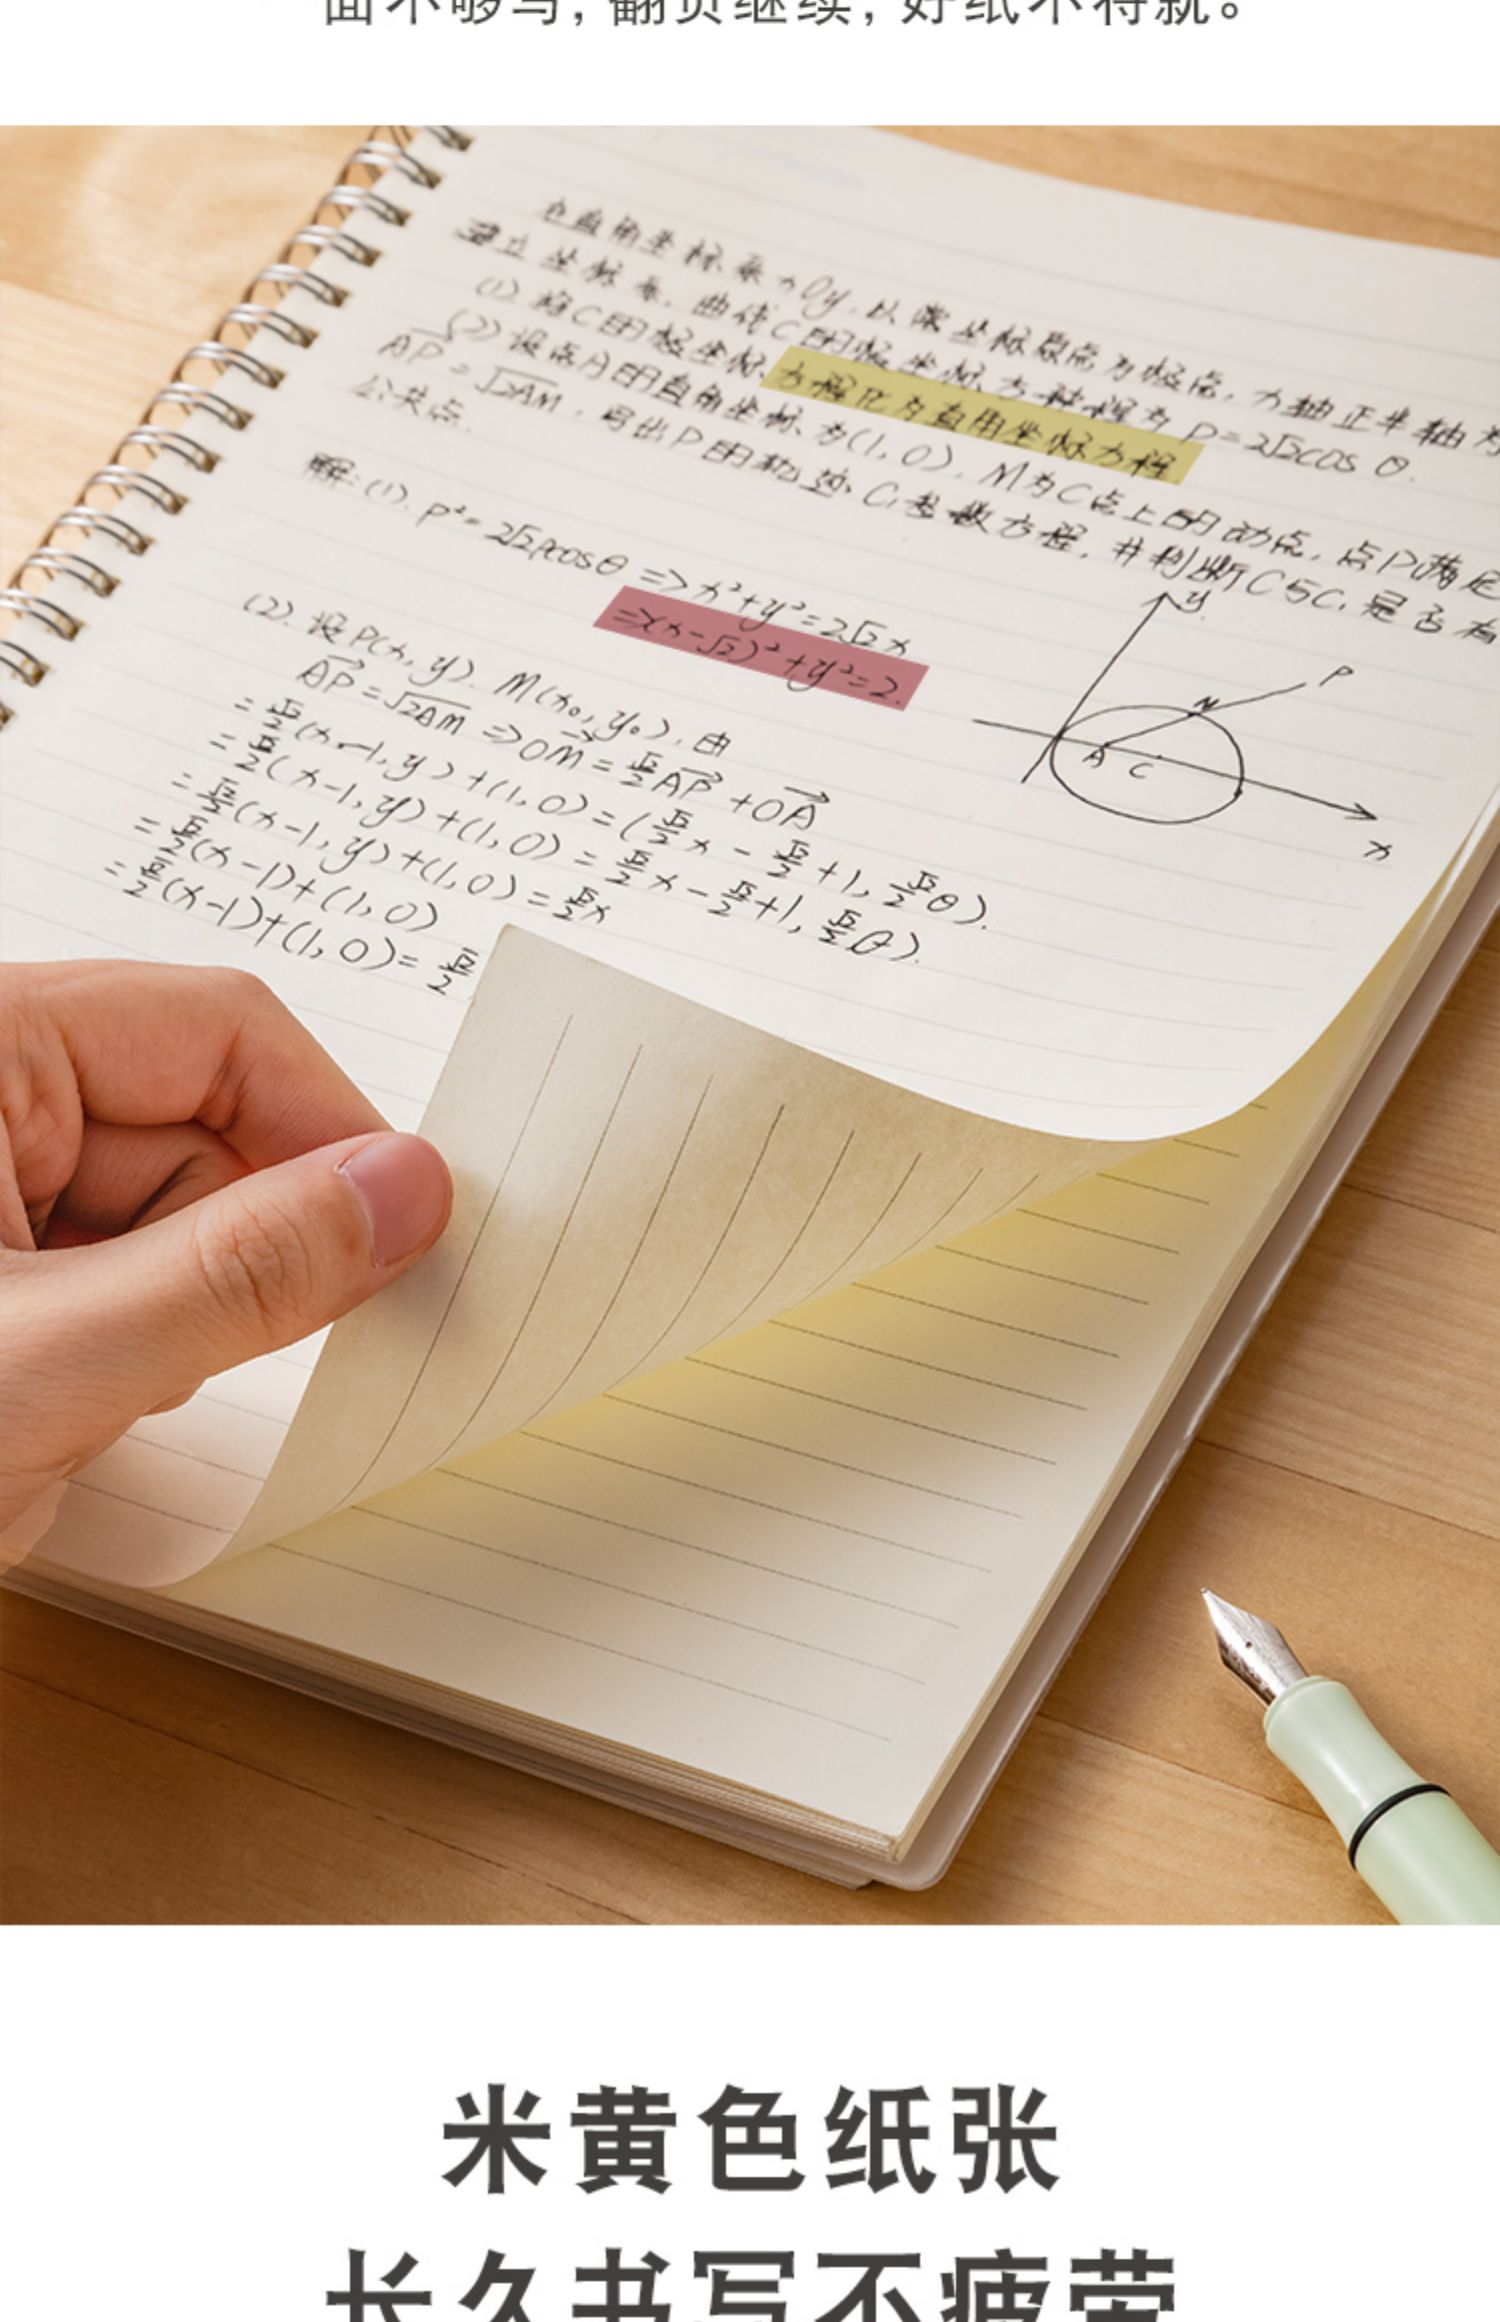 面不够写，翻页继续，好纸不将就。
在直角坐标系xOy，以潆坐标原点为极点，x轴正半轴为
建立坐标系，曲线C的极坐标方种程为ρ=2√2cosθ.
(1).将C的极坐标、方程化为直角坐标方程
(2)设点A的直角坐标、为(1,0)，M为C点上的动点，点P满足
AP=√2AM，写出P的轨迹C₁参数方程，并判断C与C₁是否有
公共点.
解:(1).ρ²=2√2ρcosθ=>x²+y²=2√2x
=>(x-√2)²+y²=2.
(2).设P(x,y).M(x₀,y₀).由
AP=√2AM=>OM=√2/2AP+OA
=√2/2(x-1,y)+(1,0)=(√2/2x-√2/2+1,√2/2θ).
=√2/2(x-1,y)+(1,0)=√2/2x-√2/2+1,√2/2θ).
=√2/2(x-1,y)+(1,0)=√2/2x
=√2/2(x-1)+(1,0)
=√2/2(x-1)+(1,0)=√2/2
y
P
M
A C
x
米黄色纸张
长久书写不疲劳